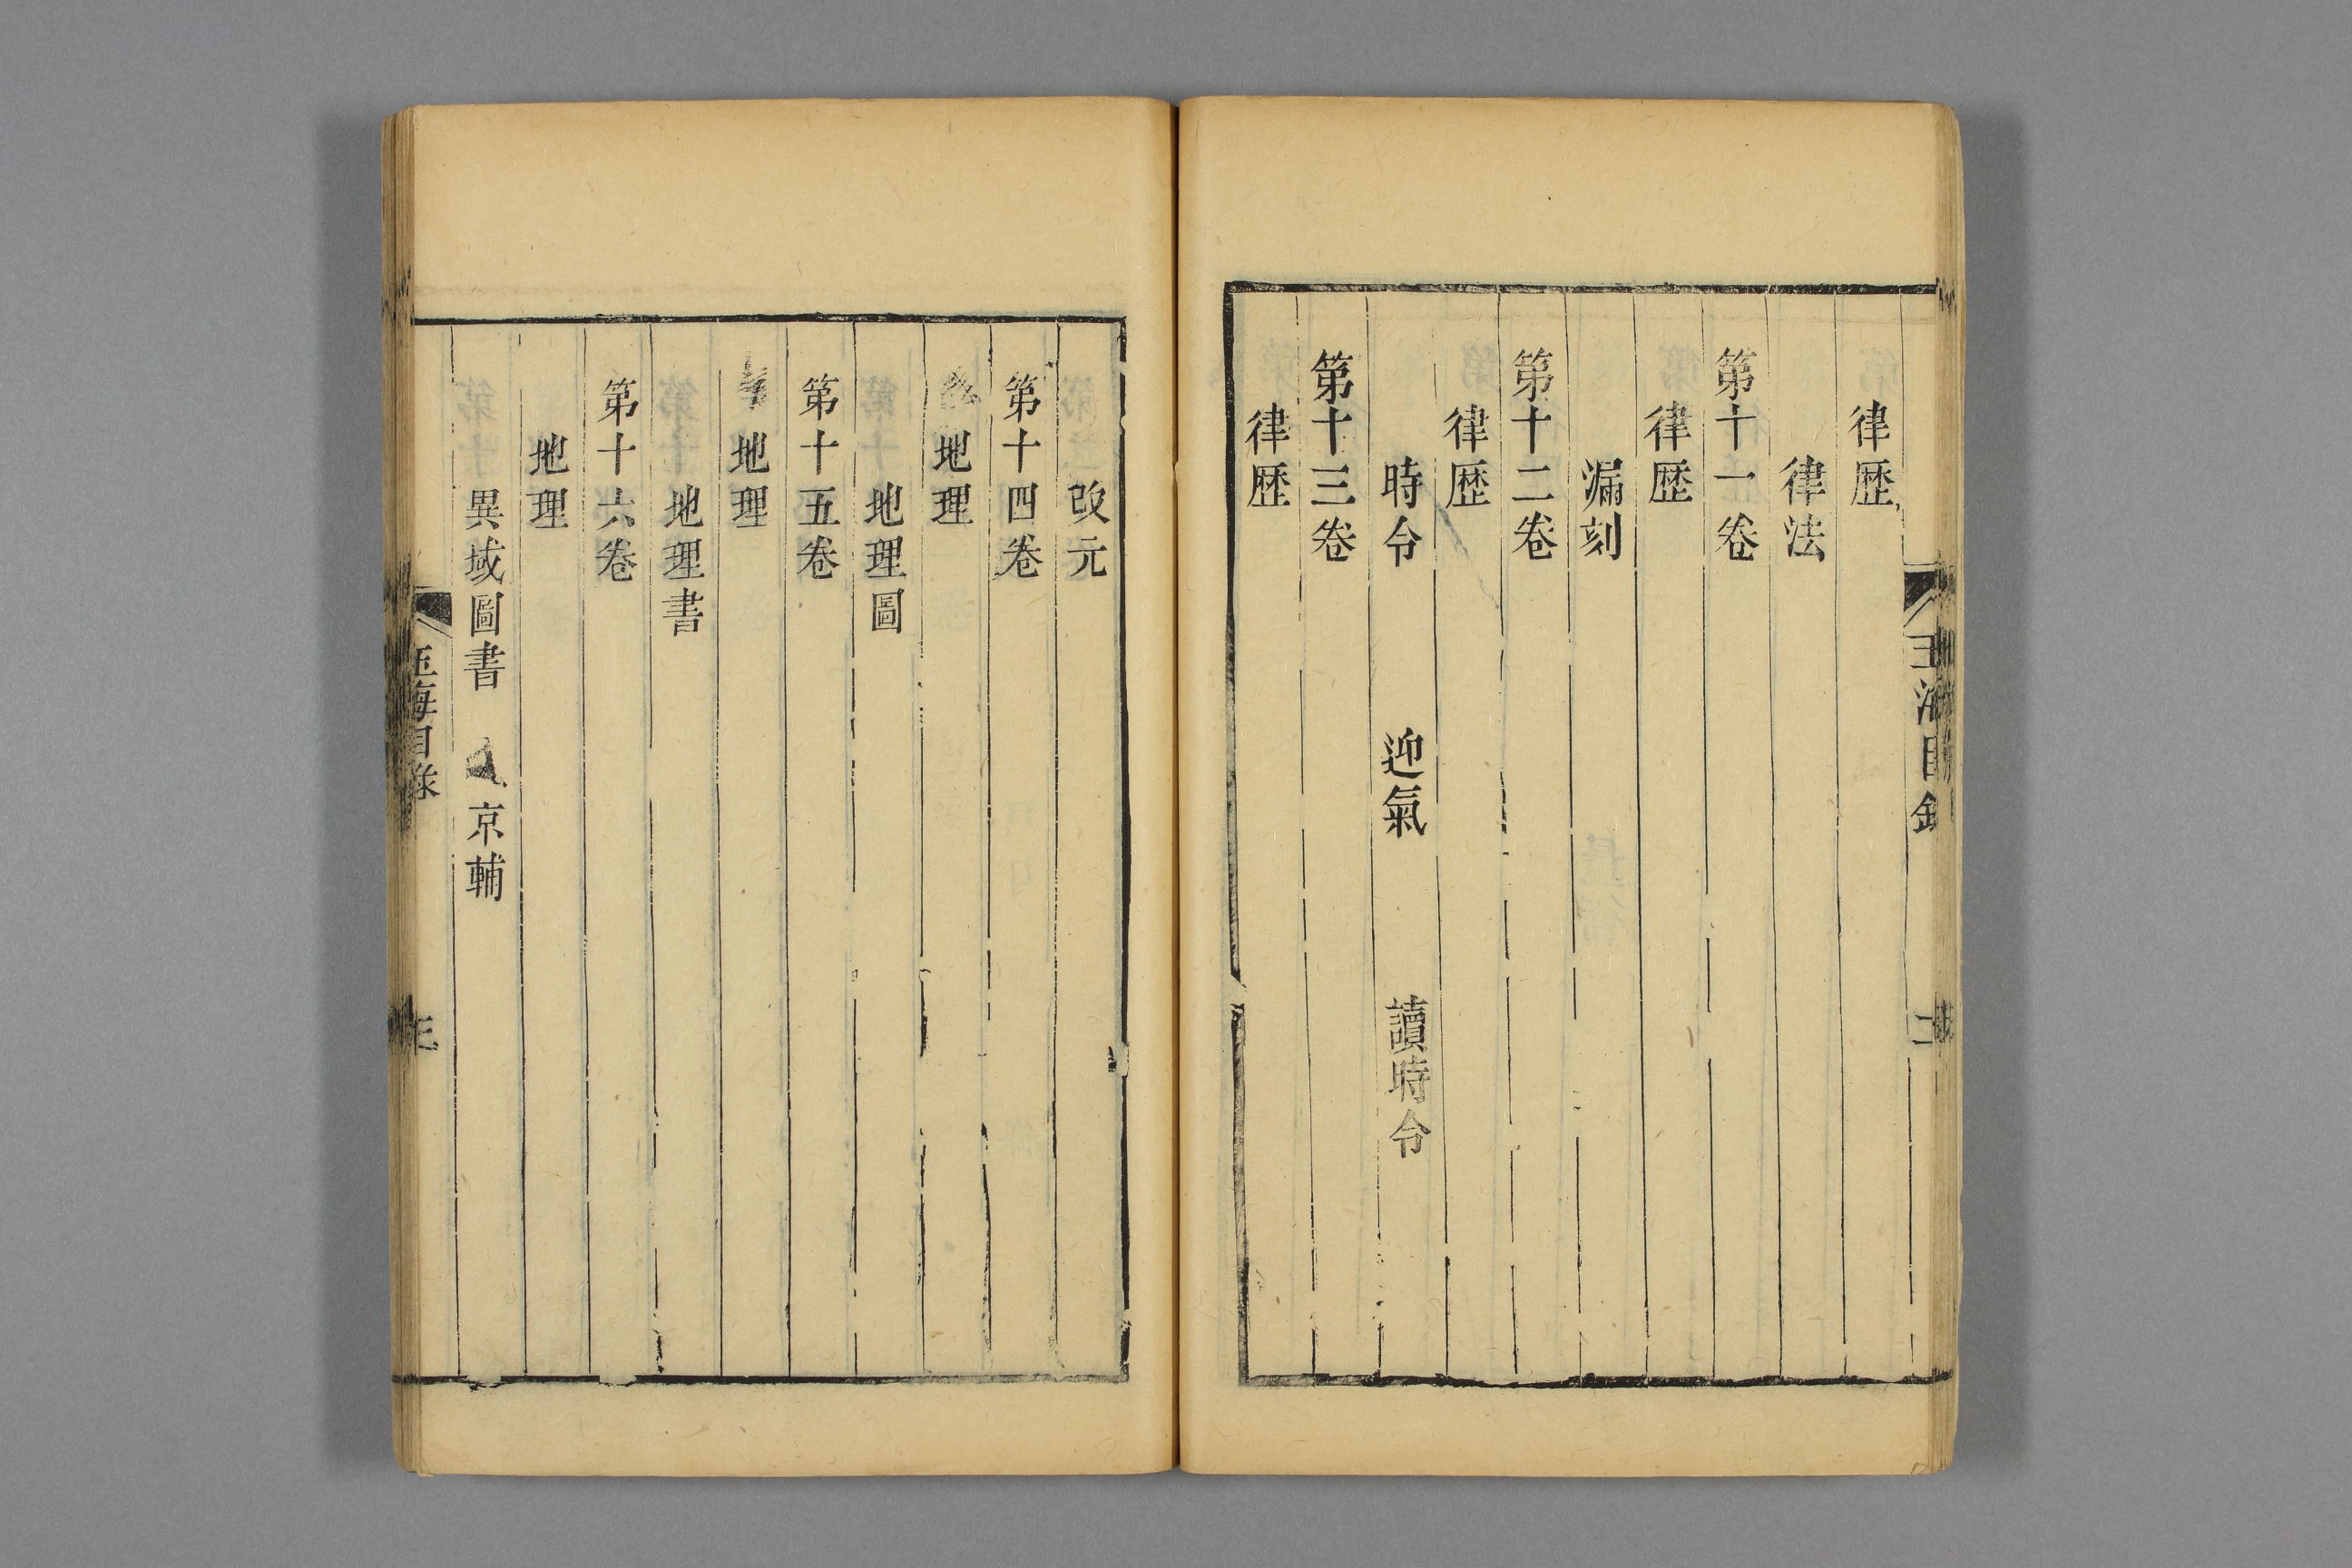 律歷
律法
第十一卷
律歷
漏刻
第十二卷
律歷
時令 迎氣 讀時令
第十三卷
律歷
改元
第十四卷
地理
地理圖
第十五卷
地理
地理書
第十六卷
地理
異域圖書 京輔
玉海目錄 三